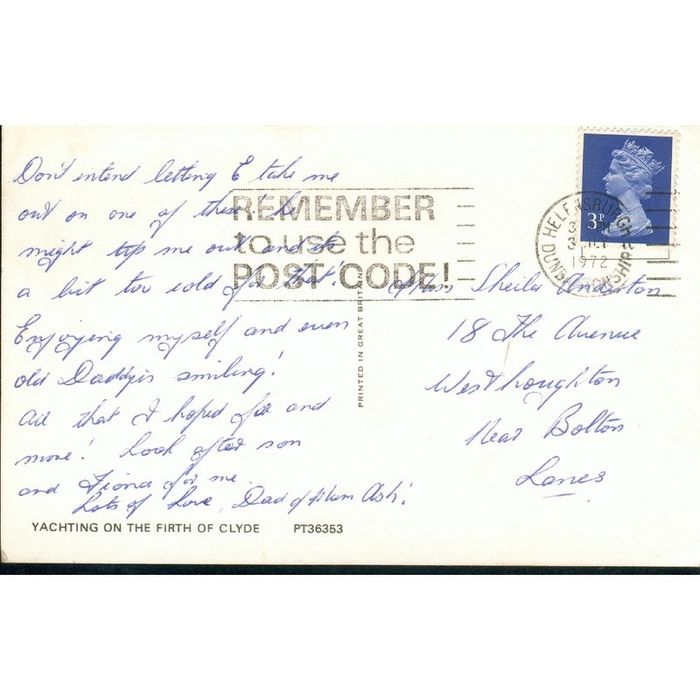 Don't intend letting E take me
out on one of these! he
might tip me out and it
a bit too cold for that!
Enjoying myself and even
old Daddy is smiling!
All that I hoped for and
more! Look after son
and Fiona for me.
Lots of Love, Dad
YACHTING ON THE FIRTH OF CLYDE PT36353
PRINTED IN GREAT BRITAIN
REMEMBER
to use the
POST CODE!
3P
HELENSBURGH
1972
DUNBARTONSHIRE
Sheila Anderton
18 The Avenue
Westhoughton
Near Bolton
Lancs